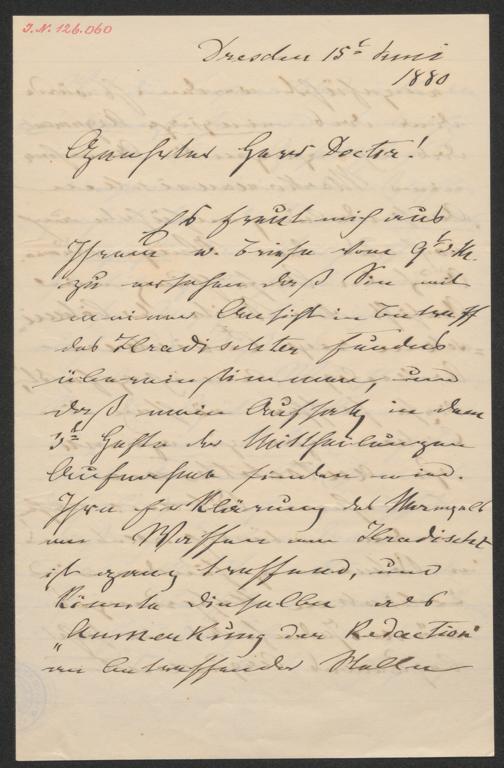 J. N. 126.060
Dresden 15t Juni
1880
Geehrter Herr Doctor!
Es freut mich aus
Ihrem w. Briefe vom 9t d. M.
zu ersehen daß Sie mit
meiner Ansicht in Betreff
des Hradischter Fundes
übereinstimmen, und
daß mein Aufsatz in dem
3t Hefte der Mittheilungen
Aufnahme finden wird.
Ihre Erklärung des Mangels
an Waffen am Hradischt
ist ganz treffend, und
könnte dieselbe als
"Anmerkung der Redaction"
an betreffender Stelle